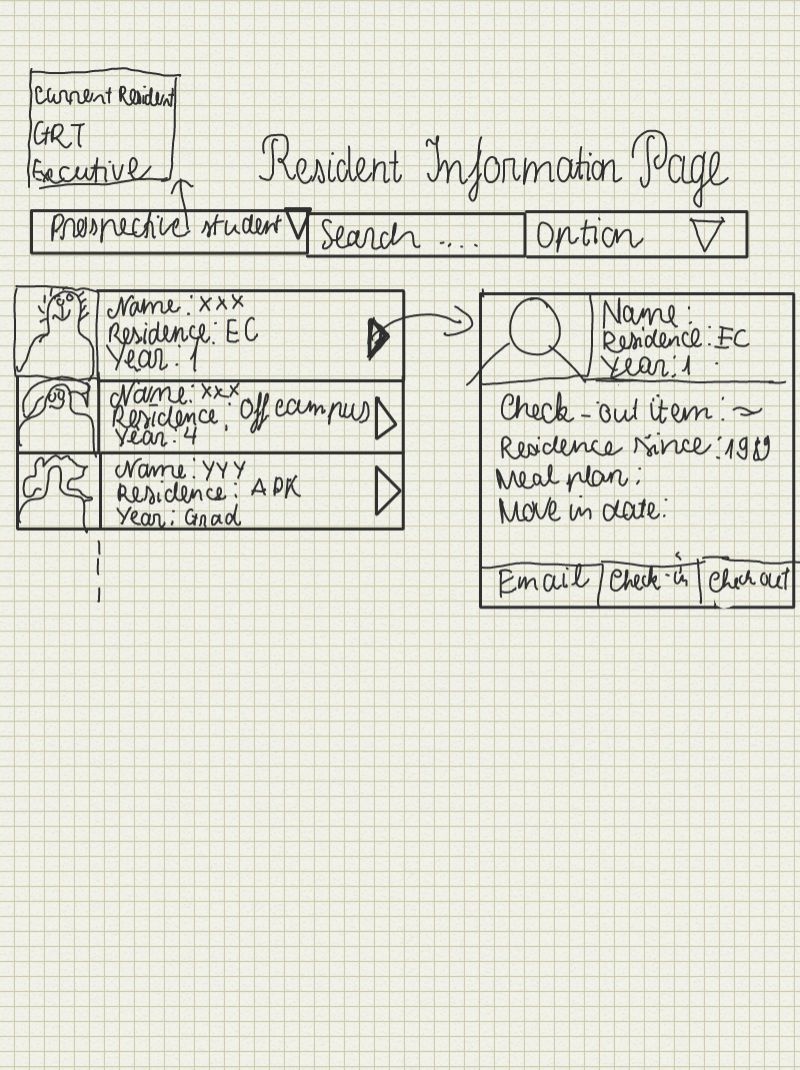 Current Resident
GRT
Executive
Resident Information Page
Prospective student
Search ....
Option
Name: XXX
Residence: EC
Year: 1
Name: XXX
Residence: Off campus
Year: 4
Name: YYY
Residence:
Year: Grad
Name:
Residence: EC
Year: 1
Check-out item: ~
Residence since: 1989
Meal plan:
Move in date:
Email
Check-in
Check out